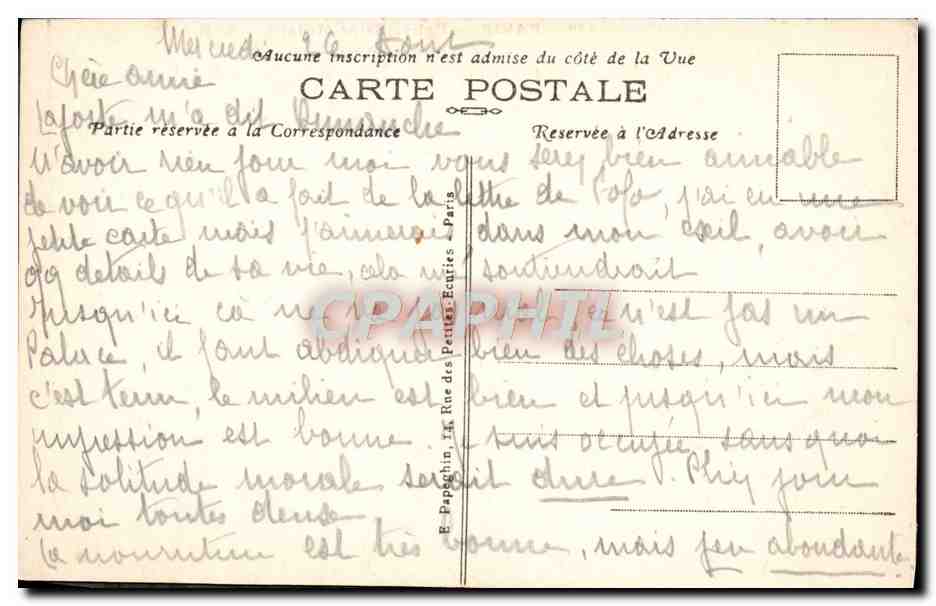 Mercredi 26 Aout
Aucune inscription n'est admise du côté de la Vue
Chère amie
CARTE POSTALE
Laposte m'a dit Dimanche
Partie réservée a la Correspondance
Reservée à l'Adresse
n'avoir rien pour moi vous serez bien aimable
de voir ce qu'il a fait de la lettre de Popo, j'ai eu une
petite carte mais j'aimerais dans mon exil, avoir
qq details de sa vie, cela me soutiendrait
Jusqu'ici ça ne va pas mal, ce n'est pas un
Palace, il faut abdiquer bien des choses, mais
c'est tenu, le milieu est bien et jusqu'ici mon
impression est bonne. Je suis occupée sans quoi
la solitude morale serait dure. Priez pour
moi toutes deux
La nourriture est très bonne, mais peu abondante
E. Papeghin, 14, Rue des Petites-Ecuries - Paris
CPAPHIL